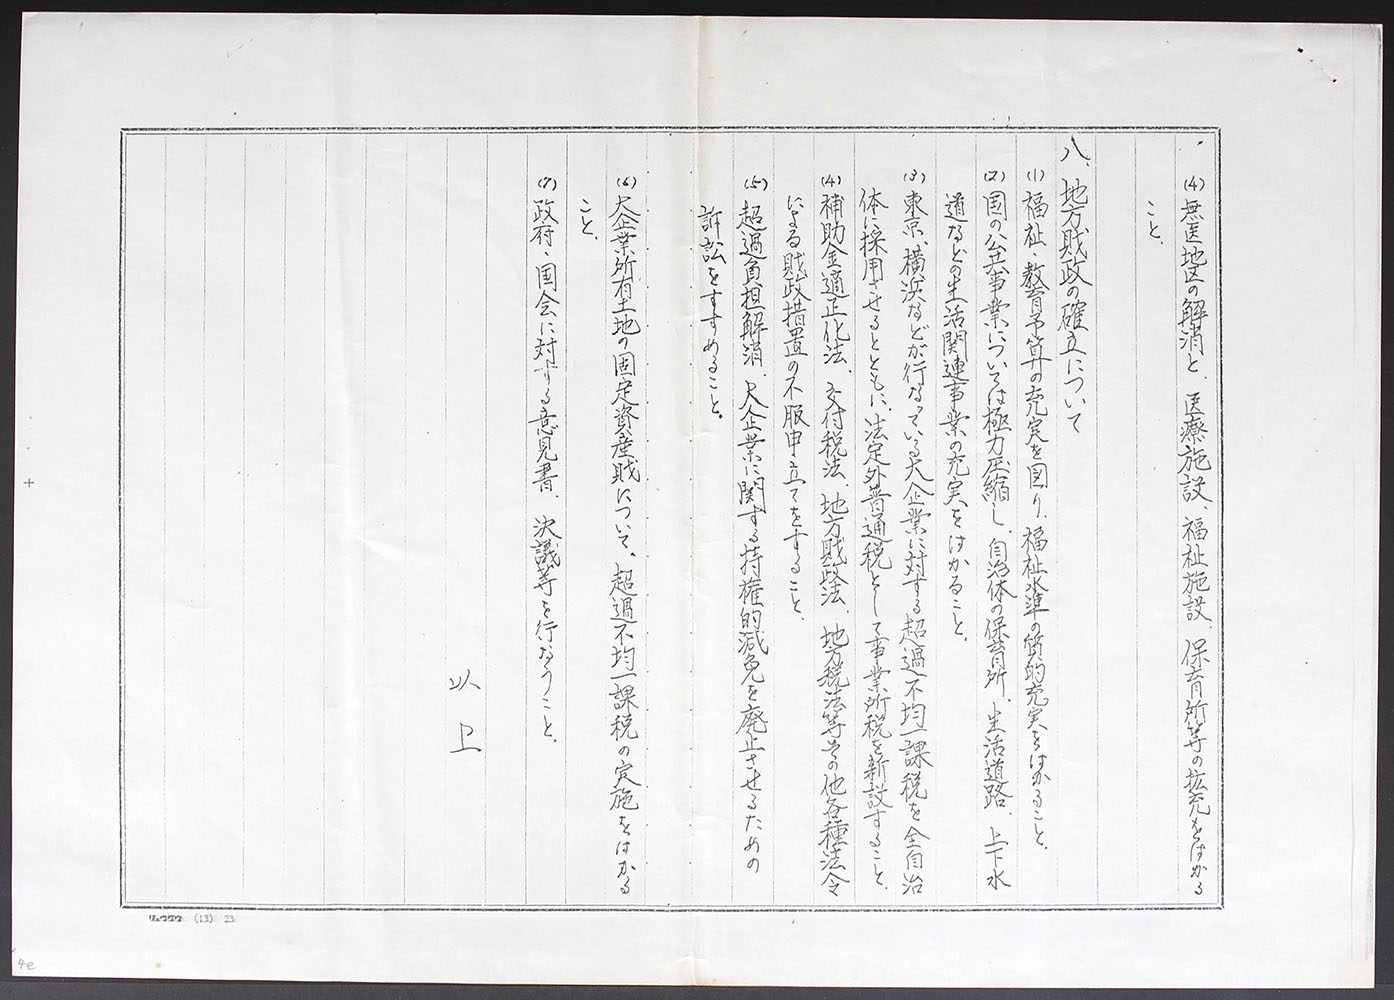 (4) 無医地区の解消と、医療施設、福祉施設、保育所等の拡充をはかる
こと。
八、地方財政の確立について
(1) 福祉、教育予算の充実を図り、福祉水準の質的充実をはかること。
(2) 国の公共事業については極力圧縮し、自治体の保育所、生活道路、上下水
道などの生活関連事業の充実をはかること。
(3) 東京、横浜などが行なっている大企業に対する超過不均一課税を全自治
体に採用させるとともに、法定外普通税として事業所税を新設すること。
(4) 補助金適正化法、交付税法、地方財政法、地方税法等その他各種法令
による財政措置の不服申立てをすること。
(5) 超過負担解消、大企業に関する特権的減免を廃止させるための
訴訟をすすめること。
(6) 大企業所有土地の固定資産財について、超過不均一課税の実施をはかる
こと。
(7) 政府、国会に対する意見書、決議等を行なうこと。
以上
リュウグウ (13) 23
4e